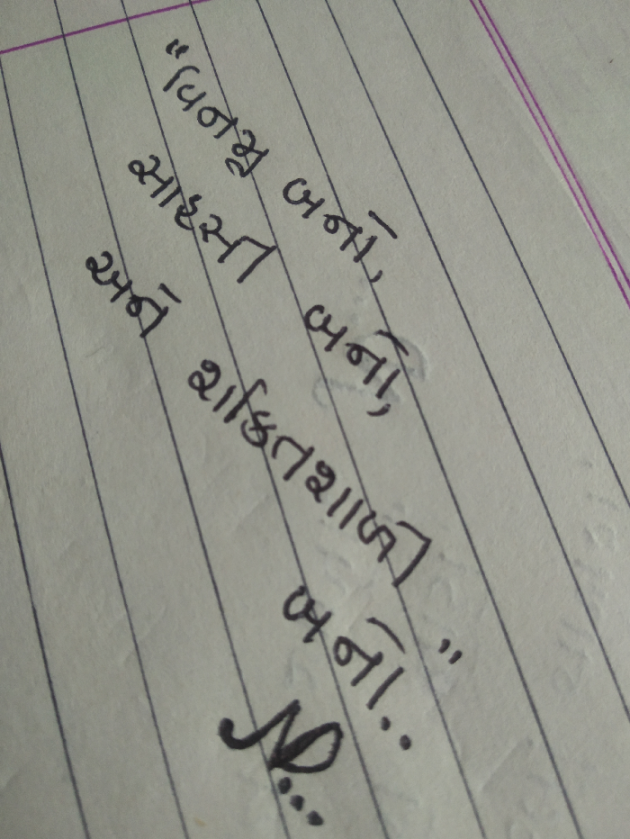 "વિનમ્ર બનો,
સાહસી બનો,
અને શક્તિશાળી
બનો.."
ND...